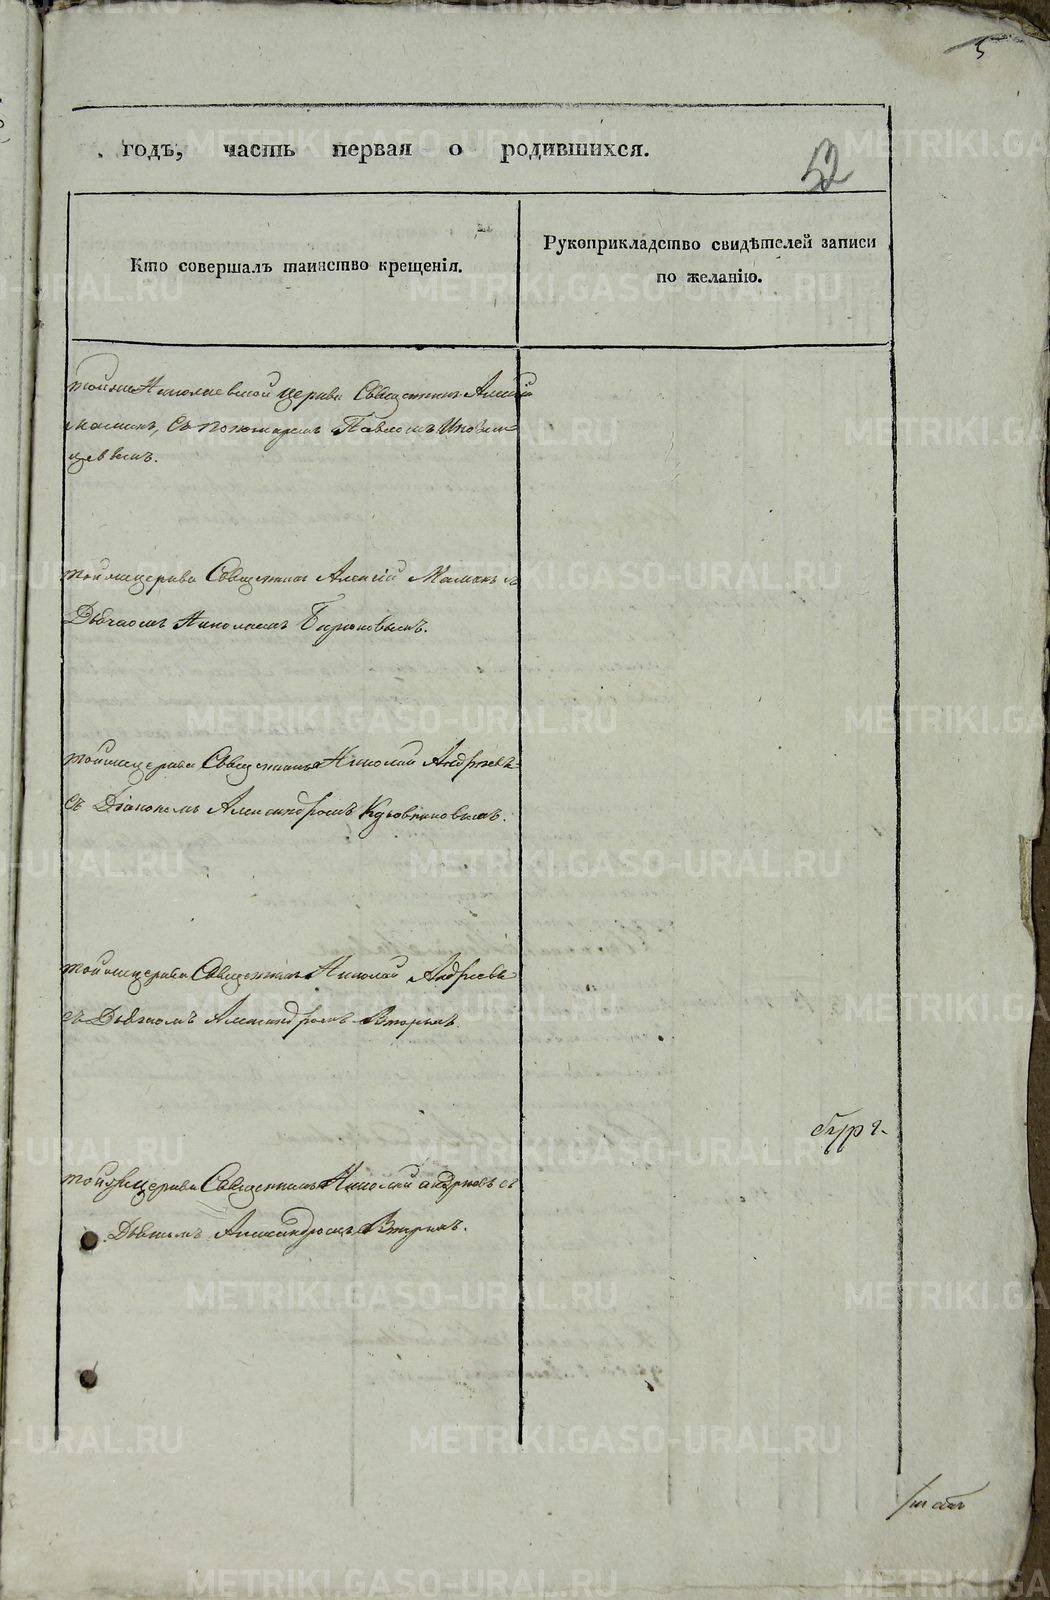 5
годъ, часть первая о родившихся.
52
Кто совершалъ таинство крещенія.
Рукоприкладство свидѣтелей записи
по желанію.
тойже Николаевской церкви Священникъ Алексій
Маминъ, съ пономаремъ Павломъ
тойже церкви Священникъ Алексій Маминъ съ
Дьячкомъ Николаемъ Бирюковымъ.
тойже церкви Священникъ Николай Андреевъ
съ Діакономъ Александромъ Кудовниковымъ.
тойже церкви Священникъ Николай Андреевъ
съ Дьячкомъ Александромъ Вторымъ.
тойже церкви Священникъ Николай Андреевъ съ
Дьячкомъ Александромъ Вторымъ.
METRIKI.GASO-URAL.RU